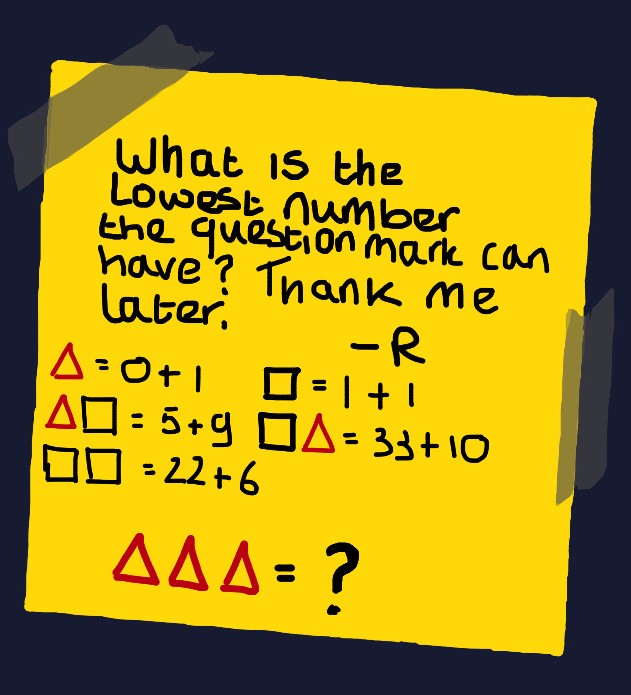 What is the
Lowest number
the question mark can
have? Thank me
later.
– R
△ = 0 + 1 □ = 1 + 1
△□ = 5 + 9 □△ = 33 + 10
□□ = 22 + 6
△△△ = ?